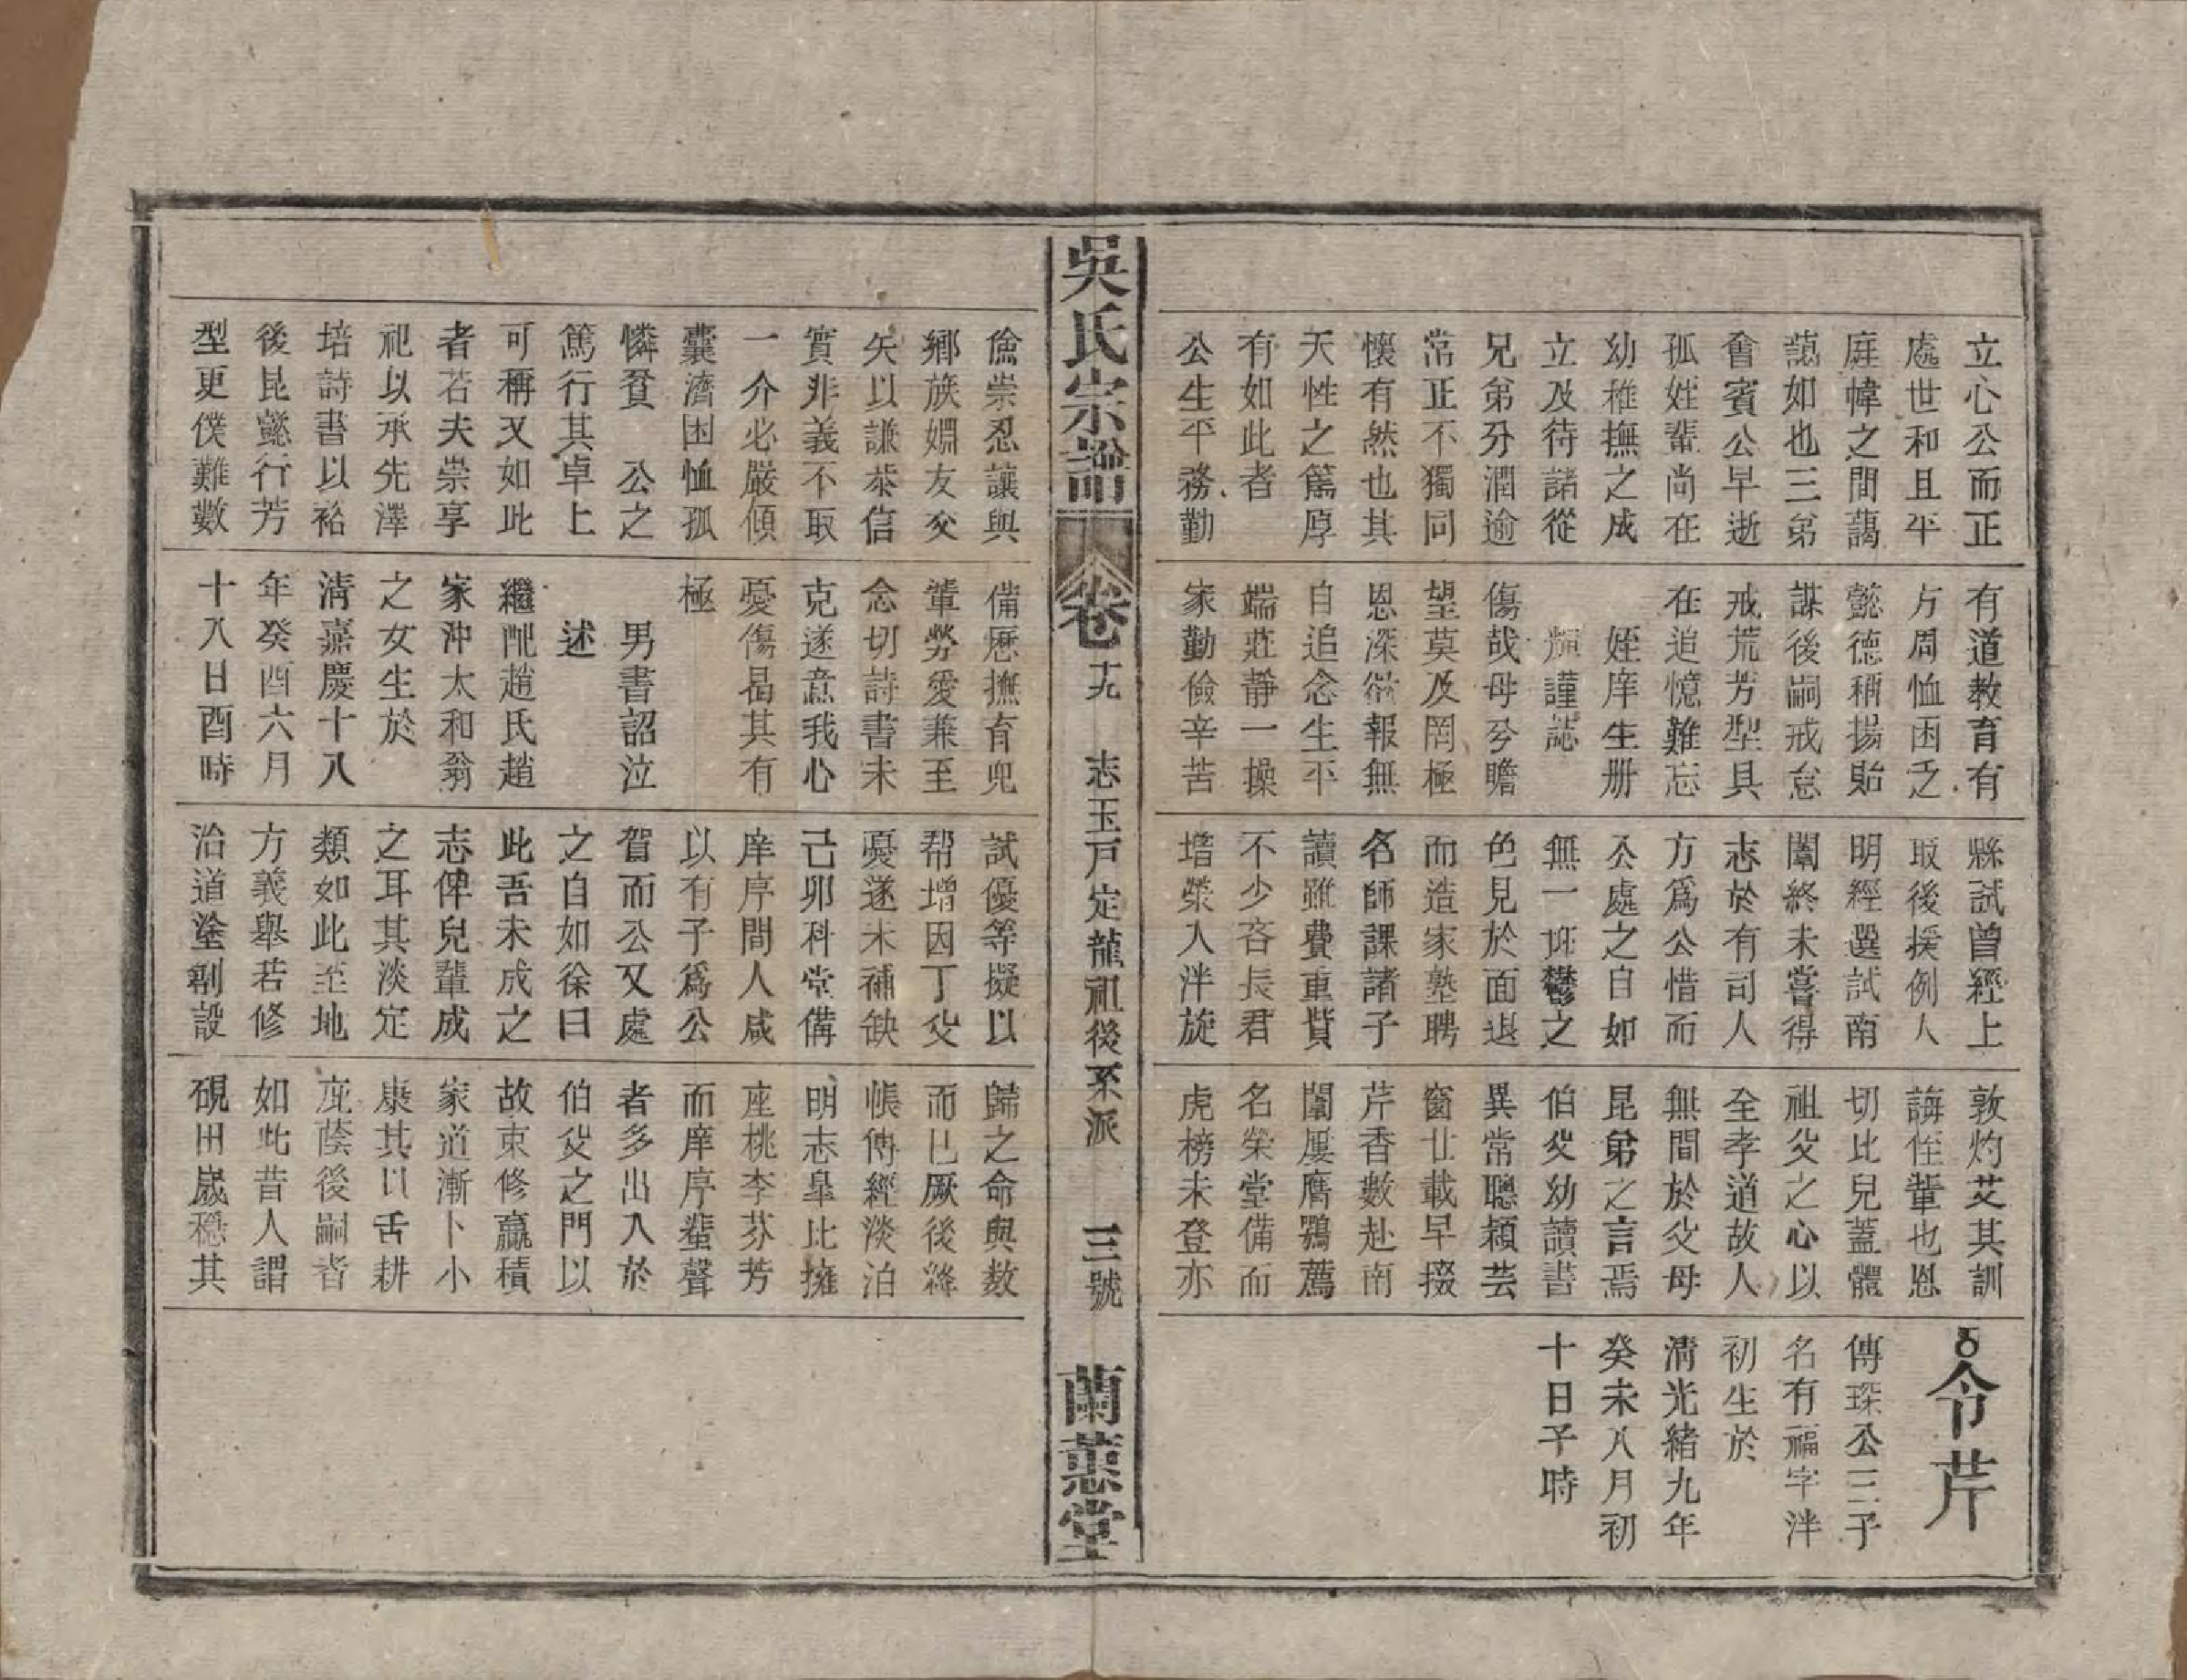 立心公而正
處世和且平
庭幃之間藹
藹如也三弟
會賓公早逝
孤姪輩尚在
幼稚撫之成
立及待諸從
兄弟分潤逾
常正不獨同
懷有然也其
天性之篤厚
有如此者
公生平務勤
有道教育有
方周恤困乏
懿德稱揚貽
謀後嗣戒怠
戒荒芳型具
在追憶難忘
姪庠生册
頫謹誌
傷哉母兮瞻
望莫及罔極
恩深欲報無
自追念生平
端莊靜一操
家勤儉辛苦
縣試曾經上
取後援例人
明經選試南
闈終未嘗得
志於有司人
方爲公惜而
公處之自如
無一抑鬱之
色見於面退
而造家塾聘
名師課諸子
讀雖費重貲
不少吝長君
增榮入泮旋
敦灼艾其訓
誨侄輩也恩
切比兒蓋體
祖父之心以
全孝道故人
無間於父母
昆弟之言焉
伯父幼讀書
異常聰穎芸
窗廿載早掇
芹香數赴南
闈屢膺鶚薦
名榮堂備而
虎榜未登亦
令芹
傳琛公三子
名有福字泮
初生於
清光緒九年
癸未八月初
十日子時
吳氏宗譜
卷十九
志玉戸定龍祖後系派
三號
蘭蕙堂
儉崇忍讓與
鄉族婣友交
矢以謙恭信
實非義不取
一介必嚴傾
囊濟困恤孤
憐貧 公之
篤行其卓上
可稱又如此
者若夫崇享
祀以承先澤
培詩書以裕
後昆懿行芳
型更僕難數
備歷撫育兜
輩勞愛兼至
念切詩書未
克遂意我心
憂傷曷其有
極
男書詔泣
述
繼配趙氏趙
家沖太和翁
之女生於
清嘉慶十八
年癸酉六月
十八日酉時
試優等擬以
帮增因丁父
憂遂未補缺
己卯科堂備
庠序間人咸
以有子爲公
賀而公又處
之自如徐曰
此吾未成之
志俾兒輩成
之耳其淡定
類如此至地
方義舉若修
治道塗創設
歸之命與数
而已厥後絳
帳傳經淡泊
明志臯比擁
座桃李芬芳
而庠序蜚聲
者多出入於
伯父之門以
故束修贏積
家道漸卜小
康其以舌耕
庇蔭後嗣者
如此昔人謂
硯田歲穩其